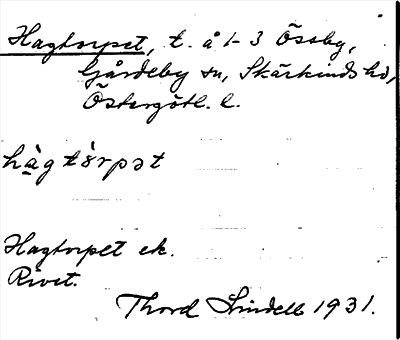 Hagtorpet, t. å 1-3 Össby,
Gårdeby sn, Skärkinds hd,
Östergötl. l.
hàgtòrpət
Hagtorpet ek.
Rivet.
Thord Lindell 1931.